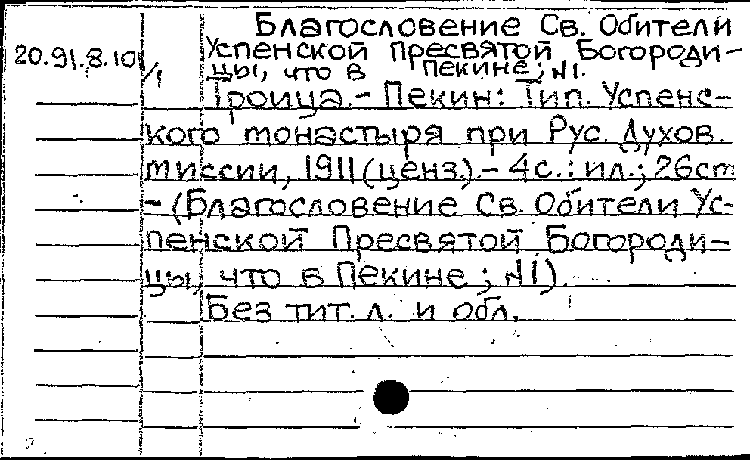 Благословение Св. Обители
20.91.8.10/1
Успенской Пресвятой Богороди-
цы, что в Пекине; №1.
Троица. - Пекин: Тип. Успенс-
кого монастыря при Рус. Духов.
миссии, 1911 (ценз.). - 4с.: ил.; 26см
- (Благословение Св. Обители Ус-
пенской Пресвятой Богороди-
цы, что в Пекине; №1).
Без тит. л. и обл.